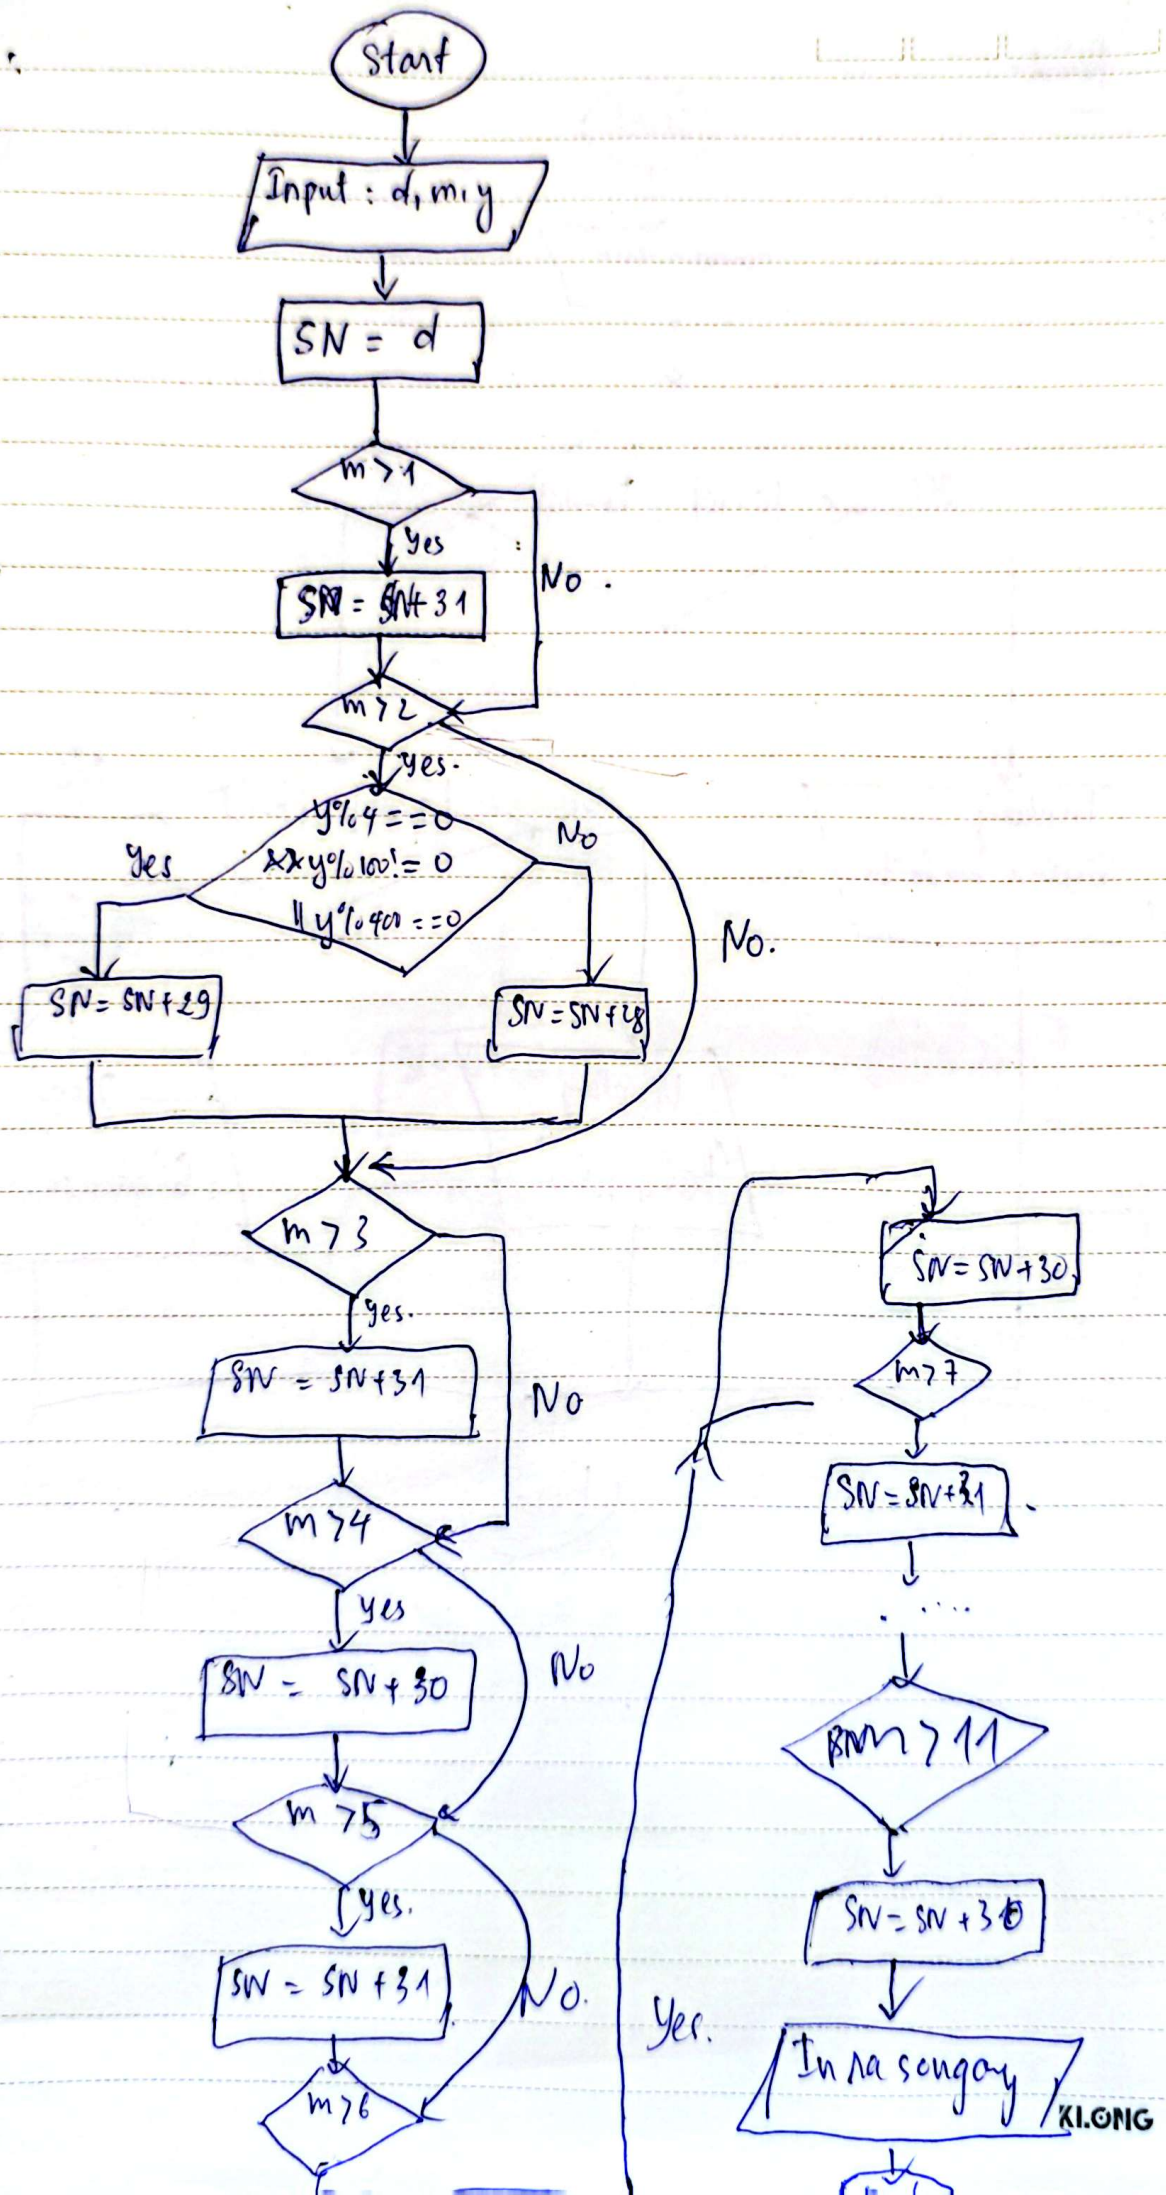 Start
Input : d, m, y
SN = d
m > 1
Yes
No .
SN = SN + 31
m > 2
Yes.
y%4 == 0
&& y%100 != 0
|| y%400 == 0
Yes
No
No.
SN = SN + 29
SN = SN + 28
m > 3
Yes.
SN = SN + 31
No
m > 4
Yes
SN = SN + 30
No
m > 5
Yes.
SN = SN + 31
No.
m > 6
Yes.
SN = SN + 30
m > 7
SN = SN + 31 .
. ....
m > 11
SN = SN + 30
In ra songay
KLONG